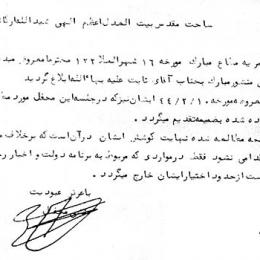 ساحت مقدس بیت العدل اعظم الهی شیدالله ارکانه
مبارک مورخه ۱۶ شهرالعلا ۱۲۲ محترما معروض
منشور مبارک بجناب آقای ثابت علیه بهاءالله ابلاغ گردید
مورخه ۴۴/۲/۱۰ ایشان نیز که در جلسه این محفل مورد
شده بضمیمه تقدیم میگردد .
مطالعه شده نهایت کوشش ایشان در آن است که برخلاف
نشود فقط در مواردی که مربوط به برنامه دولت و اخبار
است از حدود اختیار ایشان خارج میگردد .
با عرض عبودیت